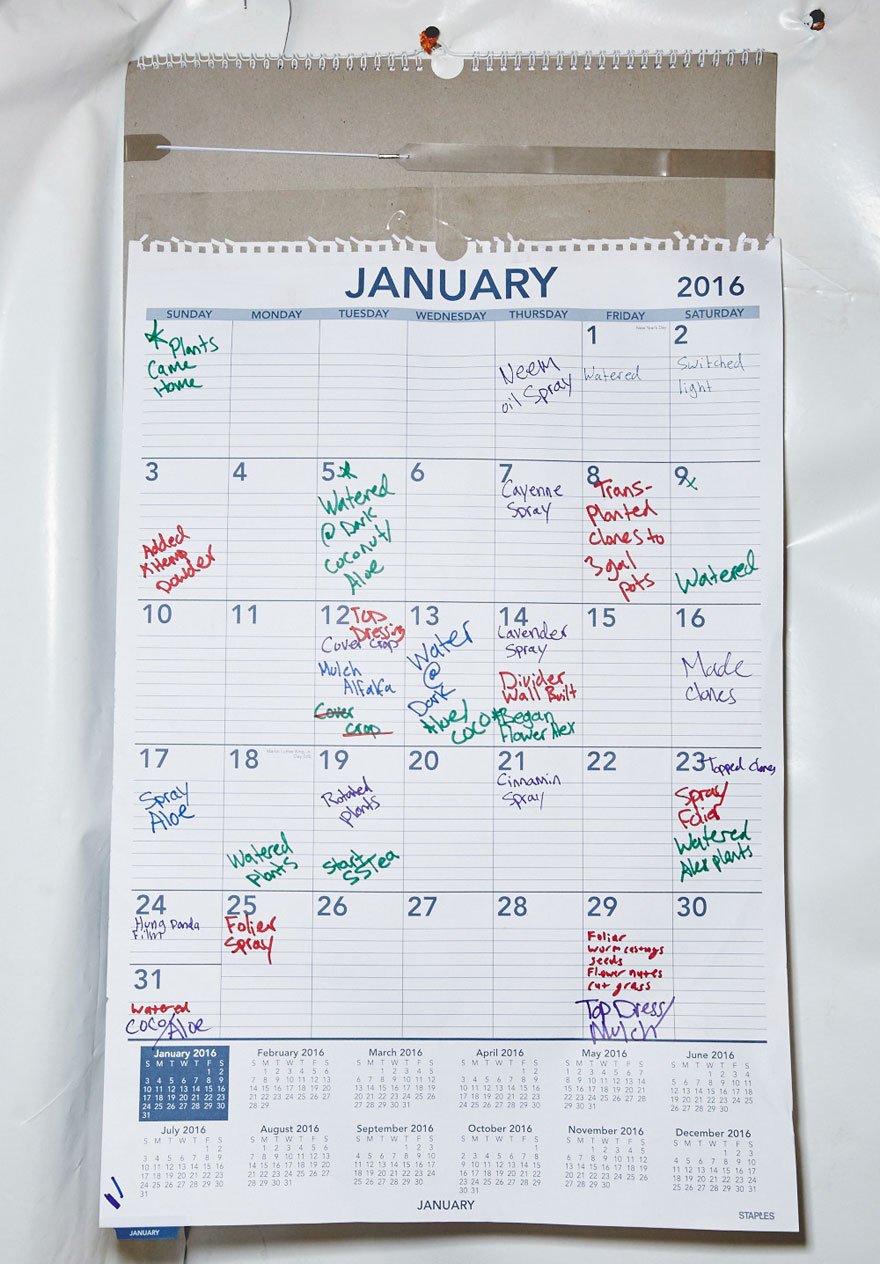 JANUARY 2016
SUNDAY MONDAY TUESDAY WEDNESDAY THURSDAY FRIDAY SATURDAY
Plants
Came
Home
Neem
oil Spray
1 New Year's Day
Watered
2
Switched
light
3
Added
Hemp
Powder
4
5
Watered
@ Dark
Coconut/
Aloe
6
7
Cayenne
Spray
8
Trans-
planted
clones to
3 gal
pots
9
Watered
10
11
12 Top
Dressing
Cover Crop
Mulch
Alfalfa
Cover
Crop
13
Water
@
Dark
Aloe/
Coco
14
Lavender
Spray
Divider
Wall Built
Began
Flower Alex
15
16
Made
clones
17
Spray
Aloe
18 Martin Luther King, Jr.
Watered
plants
19
Rotated
plants
Start
SSTea
20
21
Cinnamin
Spray
22
23 Topped clones
Spray
Folier
Watered
Alex plants
24
Hung Panda
Film
25
Folier
Spray
26
27
28
29
Folier
worm castings
seeds
Flower nutes
cut grass
Top Dress/
Mulch
30
31
Watered
Coco/Aloe
January 2016
S M T W T F S
1 2
3 4 5 6 7 8 9
10 11 12 13 14 15 16
17 18 19 20 21 22 23
24 25 26 27 28 29 30
31
February 2016
S M T W T F S
1 2 3 4 5 6
7 8 9 10 11 12 13
14 15 16 17 18 19 20
21 22 23 24 25 26 27
28 29
March 2016
S M T W T F S
1 2 3 4 5
6 7 8 9 10 11 12
13 14 15 16 17 18 19
20 21 22 23 24 25 26
27 28 29 30 31
April 2016
S M T W T F S
1 2
3 4 5 6 7 8 9
10 11 12 13 14 15 16
17 18 19 20 21 22 23
24 25 26 27 28 29 30
May 2016
S M T W T F S
1 2 3 4 5 6 7
8 9 10 11 12 13 14
15 16 17 18 19 20 21
22 23 24 25 26 27 28
29 30 31
June 2016
S M T W T F S
1 2 3 4
5 6 7 8 9 10 11
12 13 14 15 16 17 18
19 20 21 22 23 24 25
26 27 28 29 30
July 2016
S M T W T F S
1 2
3 4 5 6 7 8 9
10 11 12 13 14 15 16
17 18 19 20 21 22 23
24 25 26 27 28 29 30
31
August 2016
S M T W T F S
1 2 3 4 5 6
7 8 9 10 11 12 13
14 15 16 17 18 19 20
21 22 23 24 25 26 27
28 29 30 31
September 2016
S M T W T F S
1 2 3
4 5 6 7 8 9 10
11 12 13 14 15 16 17
18 19 20 21 22 23 24
25 26 27 28 29 30
October 2016
S M T W T F S
1
2 3 4 5 6 7 8
9 10 11 12 13 14 15
16 17 18 19 20 21 22
23 24 25 26 27 28 29
30 31
November 2016
S M T W T F S
1 2 3 4 5
6 7 8 9 10 11 12
13 14 15 16 17 18 19
20 21 22 23 24 25 26
27 28 29 30
December 2016
S M T W T F S
1 2 3
4 5 6 7 8 9 10
11 12 13 14 15 16 17
18 19 20 21 22 23 24
25 26 27 28 29 30 31
JANUARY
STAPLES
JANUARY